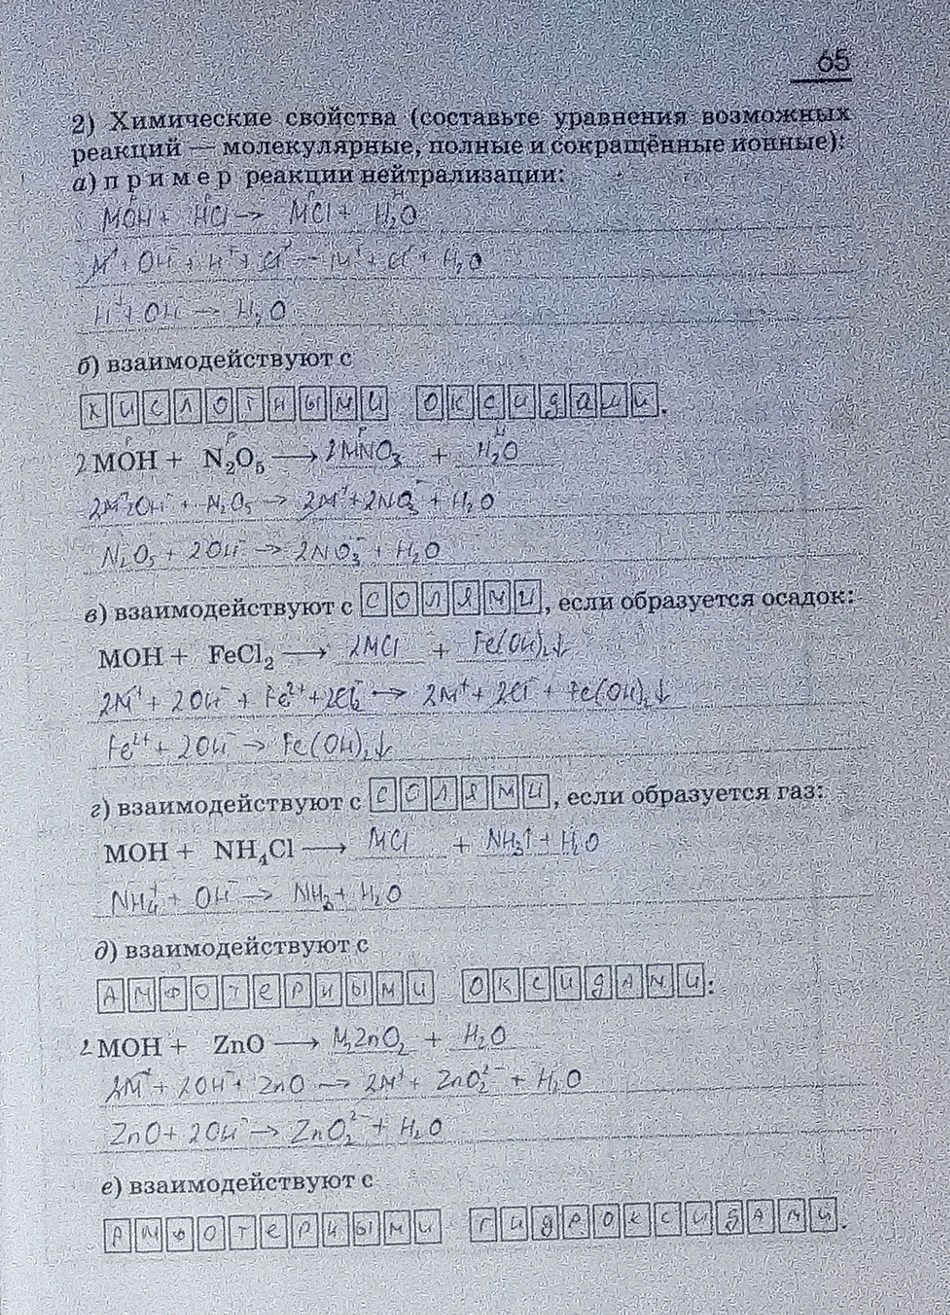 65
2) Химические свойства (составьте уравнения возможных
реакций — молекулярные, полные и сокращённые ионные):
а) пример реакции нейтрализации:
MOH + HCl → MCl + H₂O
M⁺ + OH⁻ + H⁺ + Cl⁻ → M⁺ + Cl⁻ + H₂O
H⁺ + OH⁻ → H₂O
б) взаимодействуют с
кислотными оксидами.
2MOH + N₂O₅ ⟶ 2MNO₃ + H₂O
2M⁺ 2OH⁻ + N₂O₅ → 2M⁺ + 2NO₃⁻ + H₂O
N₂O₅ + 2OH⁻ → 2NO₃⁻ + H₂O
в) взаимодействуют с солями, если образуется осадок:
MOH + FeCl₂ ⟶ 2MCl + Fe(OH)₂↓
2M⁺ + 2OH⁻ + Fe²⁺ + 2Cl₂⁻ → 2M⁺ + 2Cl⁻ + Fe(OH)₂↓
Fe²⁺ + 2OH⁻ → Fe(OH)₂↓
г) взаимодействуют с солями, если образуется газ:
MOH + NH₄Cl ⟶ MCl + NH₃↑ + H₂O
NH₄⁺ + OH⁻ → NH₃ + H₂O
д) взаимодействуют с
Амфотерными оксидами:
2MOH + ZnO ⟶ M₂ZnO₂ + H₂O
2M⁺ + 2OH⁻ + ZnO → 2M⁺ + ZnO₂²⁻ + H₂O
ZnO + 2OH⁻ → ZnO₂²⁻ + H₂O
е) взаимодействуют с
Амфотерными гидроксидами.